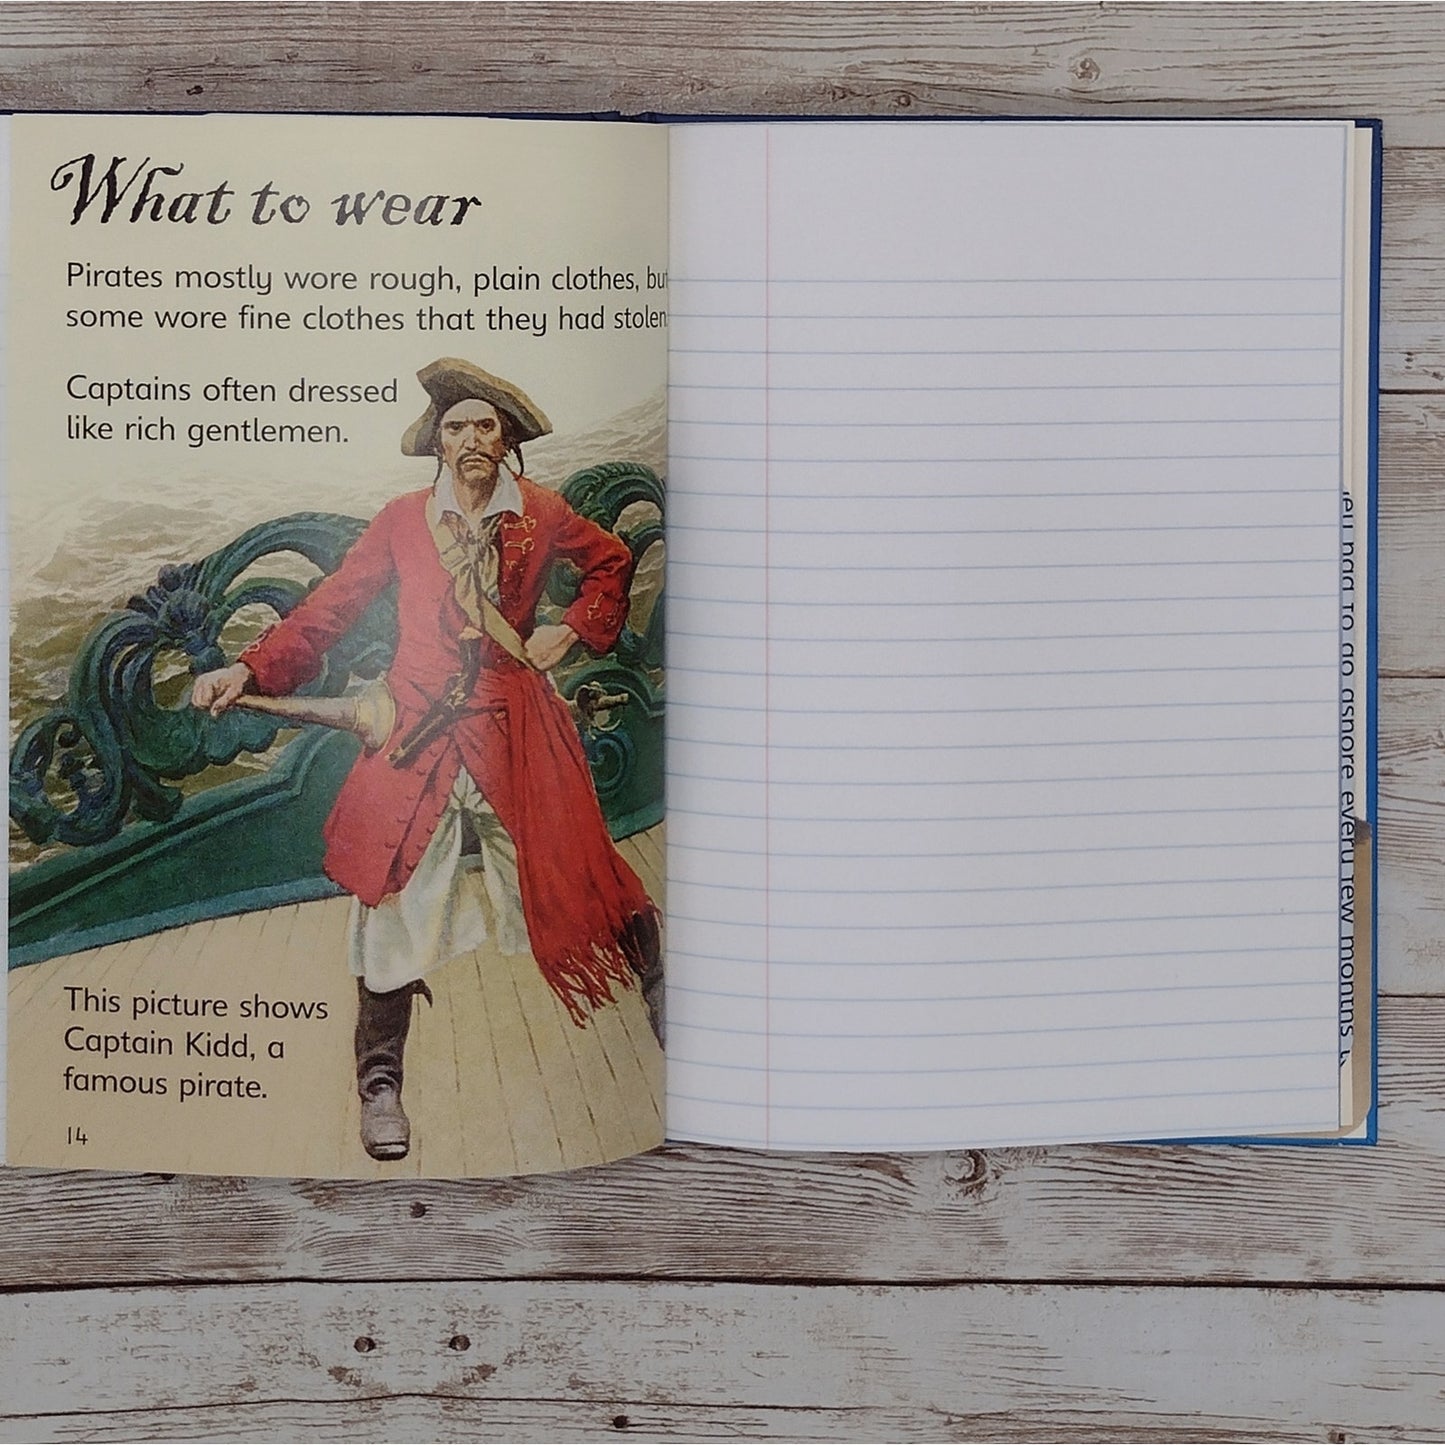 What to wear
Pirates mostly wore rough, plain clothes, but
some wore fine clothes that they had stolen
Captains often dressed
like rich gentlemen.
This picture shows
Captain Kidd, a
famous pirate.
14
had to go ashore every few months